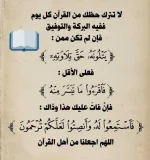 لا تترك حظك من القرآن كل يوم
ففيه البركة والتوفيق
فإن لم تكن ممن :
﴿ يَتْلُونَهُ حَقَّ تِلَاوَتِهِ ﴾
فعلى الأقل :
﴿ فَاقْرَءُوا مَا تَيَسَّرَ مِنْهُ ﴾
فإن فات عليك هذا وذاك :
﴿ فَاسْتَمِعُوا لَهُ وَأَنْصِتُوا لَعَلَّكُمْ تُرْحَمُونَ ﴾
اللهم اجعلنا من أهل القرآن